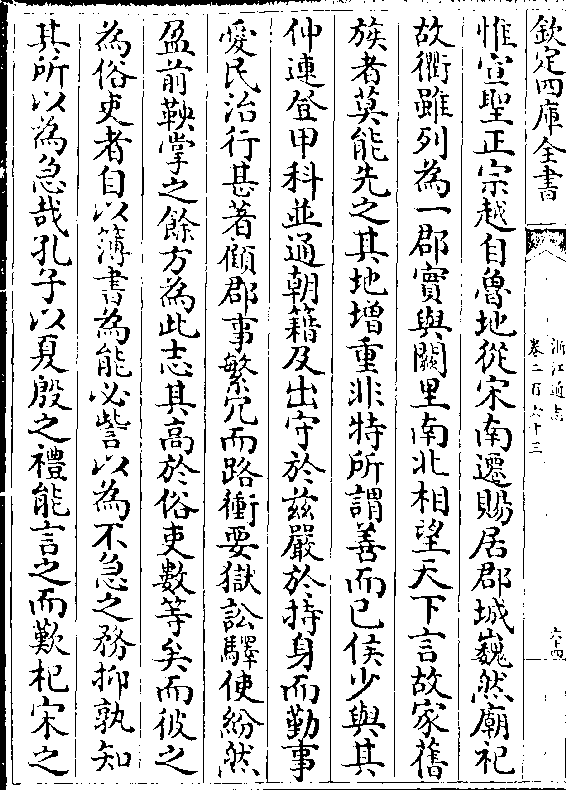 欽定四庫全書
浙江通志
卷二百六十三
六十四
惟宣聖正宗越自魯地從宋南遷賜居郡城巍然廟祀
故衢雖列為一郡實與闕里南北相望天下言故家舊
族者莫能先之其地增重非特所謂善而已侯少與其
仲連登甲科並通朝籍及出守於兹嚴於持身而勤事
愛民治行甚著顧郡事繁冗而路衝要獄訟驛使紛然
盈前鞅掌之餘方為此志其高於俗吏數等矣而彼之
為俗吏者自以簿書為能必訾以為不急之務抑孰知
其所以為急哉孔子以夏殷之禮能言之而歎杞宋之